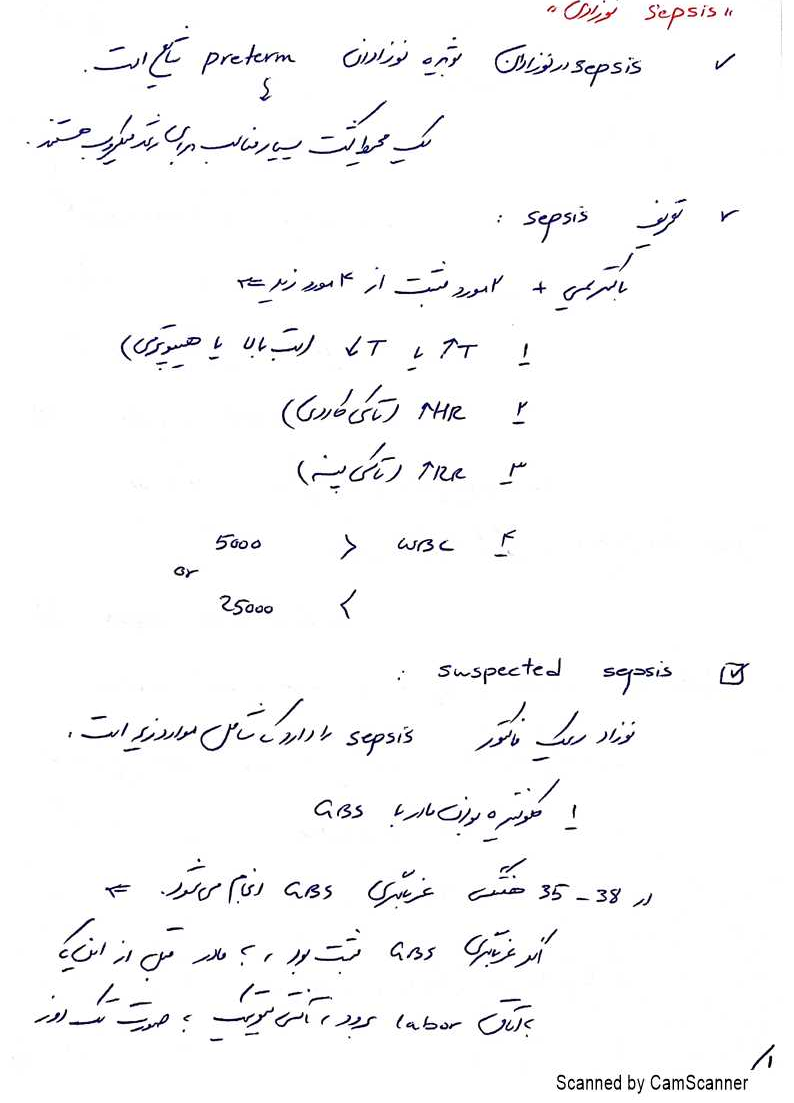 "sepsis نوزادی"
✓ sepsis در نوزادان بویژه نوزادان preterm شایع است.
یک محیط کشت بسیار مناسب برای رشد میکروب هستند.
✓ تعریف sepsis :
باکتریمی + ۲ مورد مثبت از ۴ مورد زیر ⇐
۱ ↑T یا ↓T (تب بالا یا هیپوترمی)
۲ ↑HR (تاکی کاردی)
۳ ↑RR (تاکی پنه)
۴ WBC < 5000
or
> 25000
☑ suspected sepsis :
نوزاد ریسک فاکتور sepsis را دارد که شامل موارد زیر است.
۱ کلونیزه بودن مادر با GBS
در 38 - 35 هفتگی غربالگری GBS انجام می‌شود. ⇐
اگر غربالگری GBS مثبت بود، به مادر قبل از اینکه
به اتاق labor برود، آنتی بیوتیک به صورت تک دوز
۱/
Scanned by CamScanner